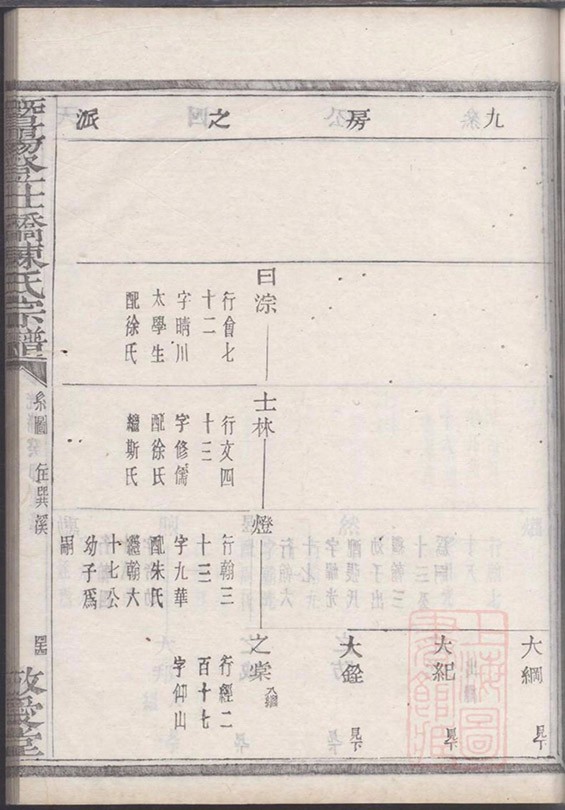 九房之派
大綱 見下
大紀 見下
大銓 見下
曰淙
行會七
十二
字晴川
太學生
配徐氏
士林
行文四
十三
字修儒
配徐氏
繼斯氏
燈
行翰三
十三
字九華
配朱氏
繼翰大
十七公
幼子為
嗣
之棠 入繼
行經二
百十七
字仰山
暨陽登仕橋陳氏宗譜
系圖 在巽溪
敬愛堂
上海圖書館藏